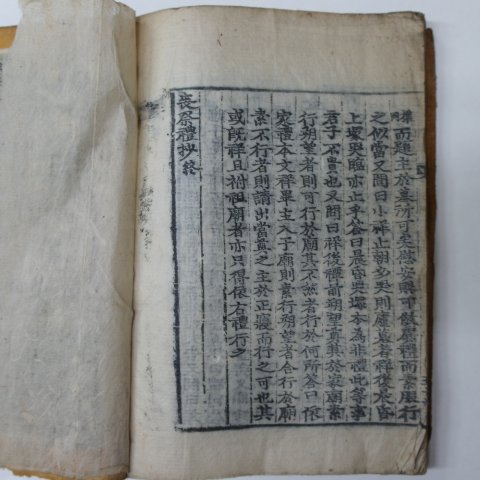 而題主於墓所可矣
之似當又問曰小祥止朝夕哭則廬墓者祥後晨昏
上塚哭臨亦止乎答曰晨昏哭塚本爲非禮此等事
君子不貴也又問曰祥後禫前朔望奠其於家廟素
行朔望者則可行於廟其不然者行於何所答曰依
家禮本文祥畢主入于廟則素行朔望者合行於廟
素不行者則請出當奠之主於正寢而行之可也其
或旣祥且祔祖廟者亦只得依右禮行之
喪祭禮抄終